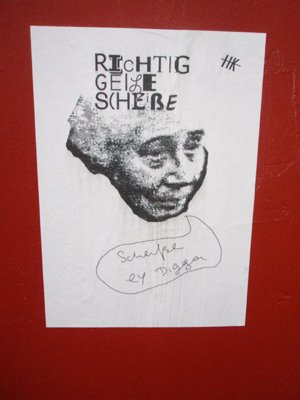 RICHTIG
HK
GEILE
SCHEIßE
Scheiße
ey Digga